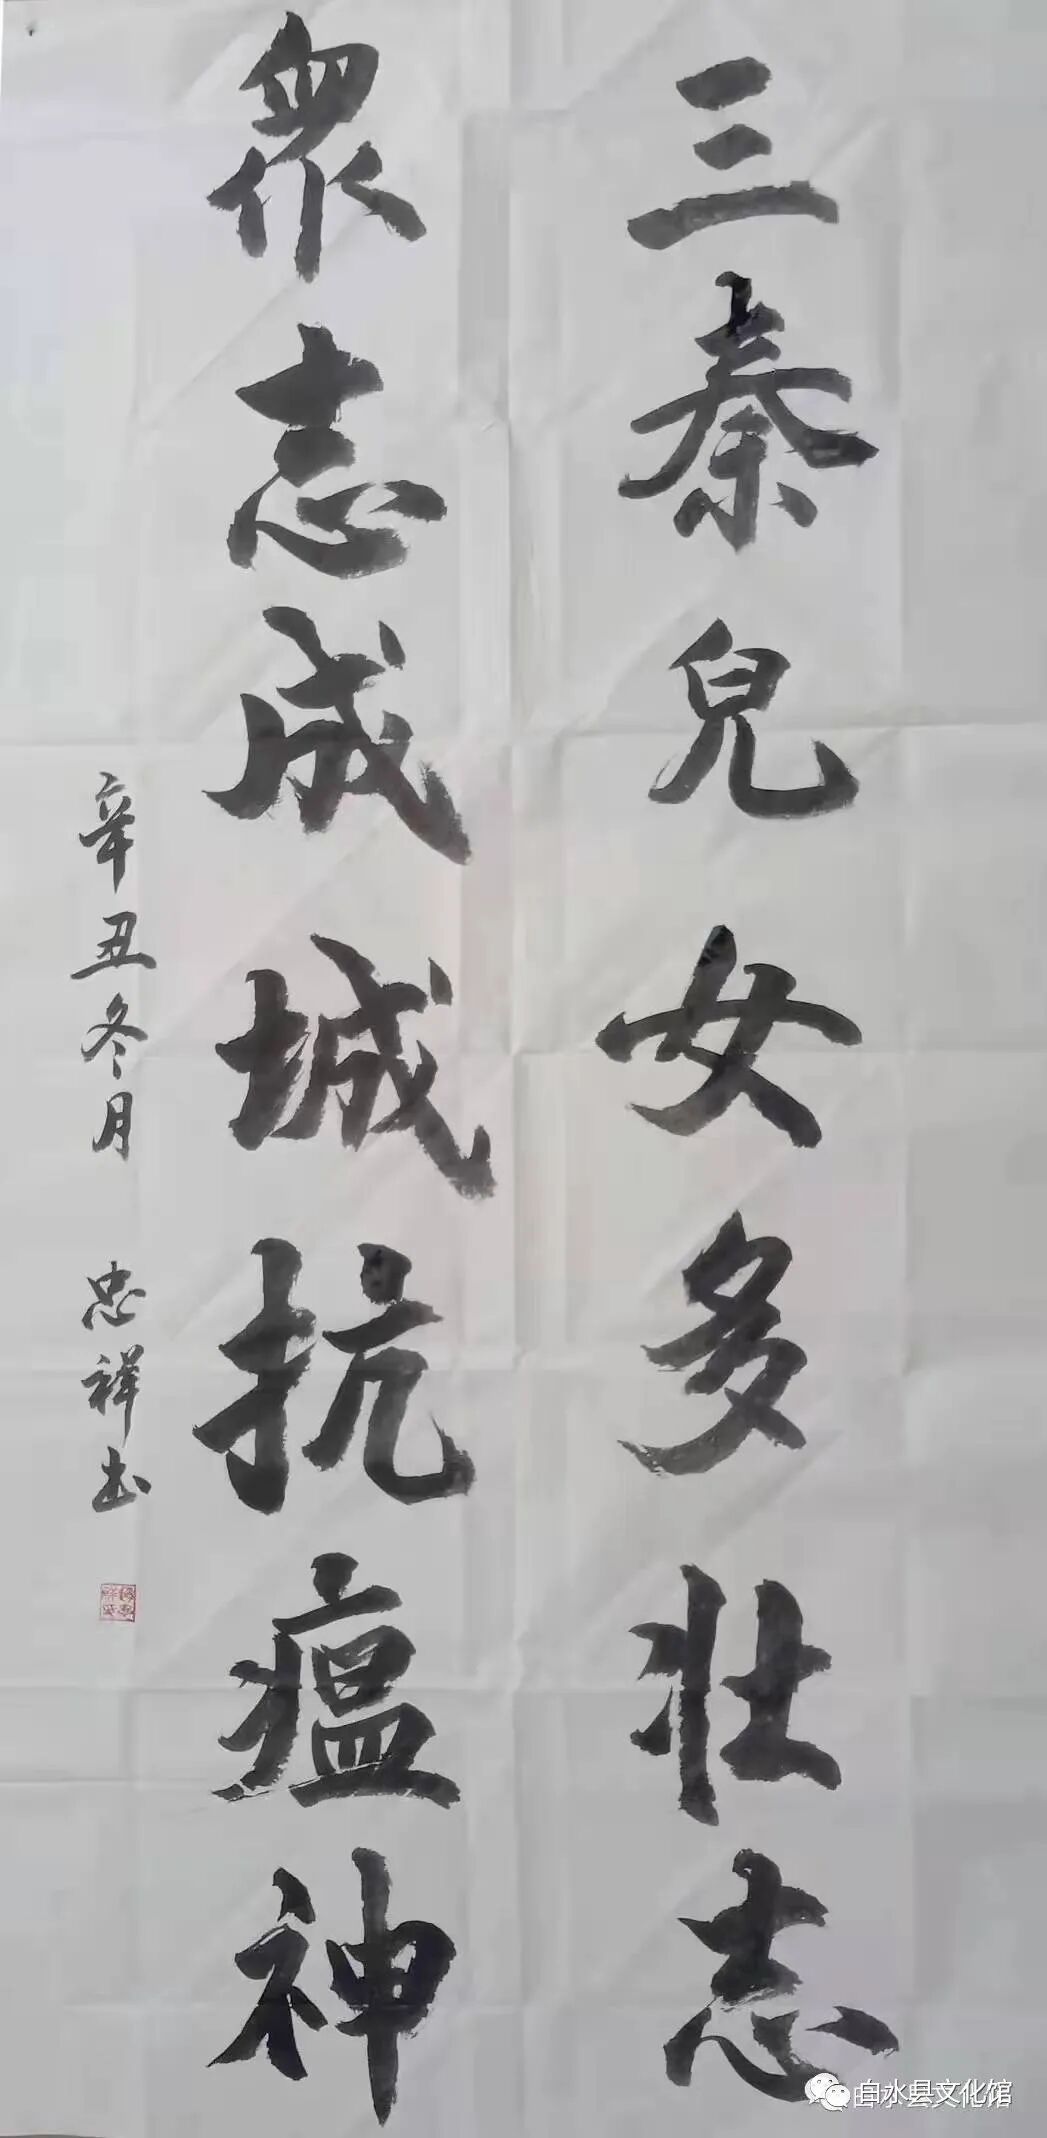 三秦兒女多壮志
眾志成城抗瘟神
辛丑冬月 忠祥书
白水县文化馆